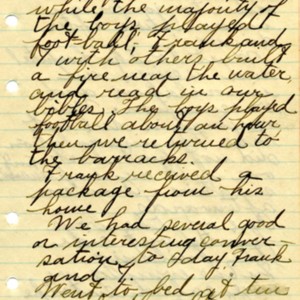 while the majority of
the boys played
foot-ball, Frank and
I with others built
a fire near the water,
and read in our
bibles. The boys played
football about an hour,
then we returned to
the barracks.
Frank received a
package from his
home
We had several good
or interesting conver
sation to day, Frank
and
Went to bed at ten